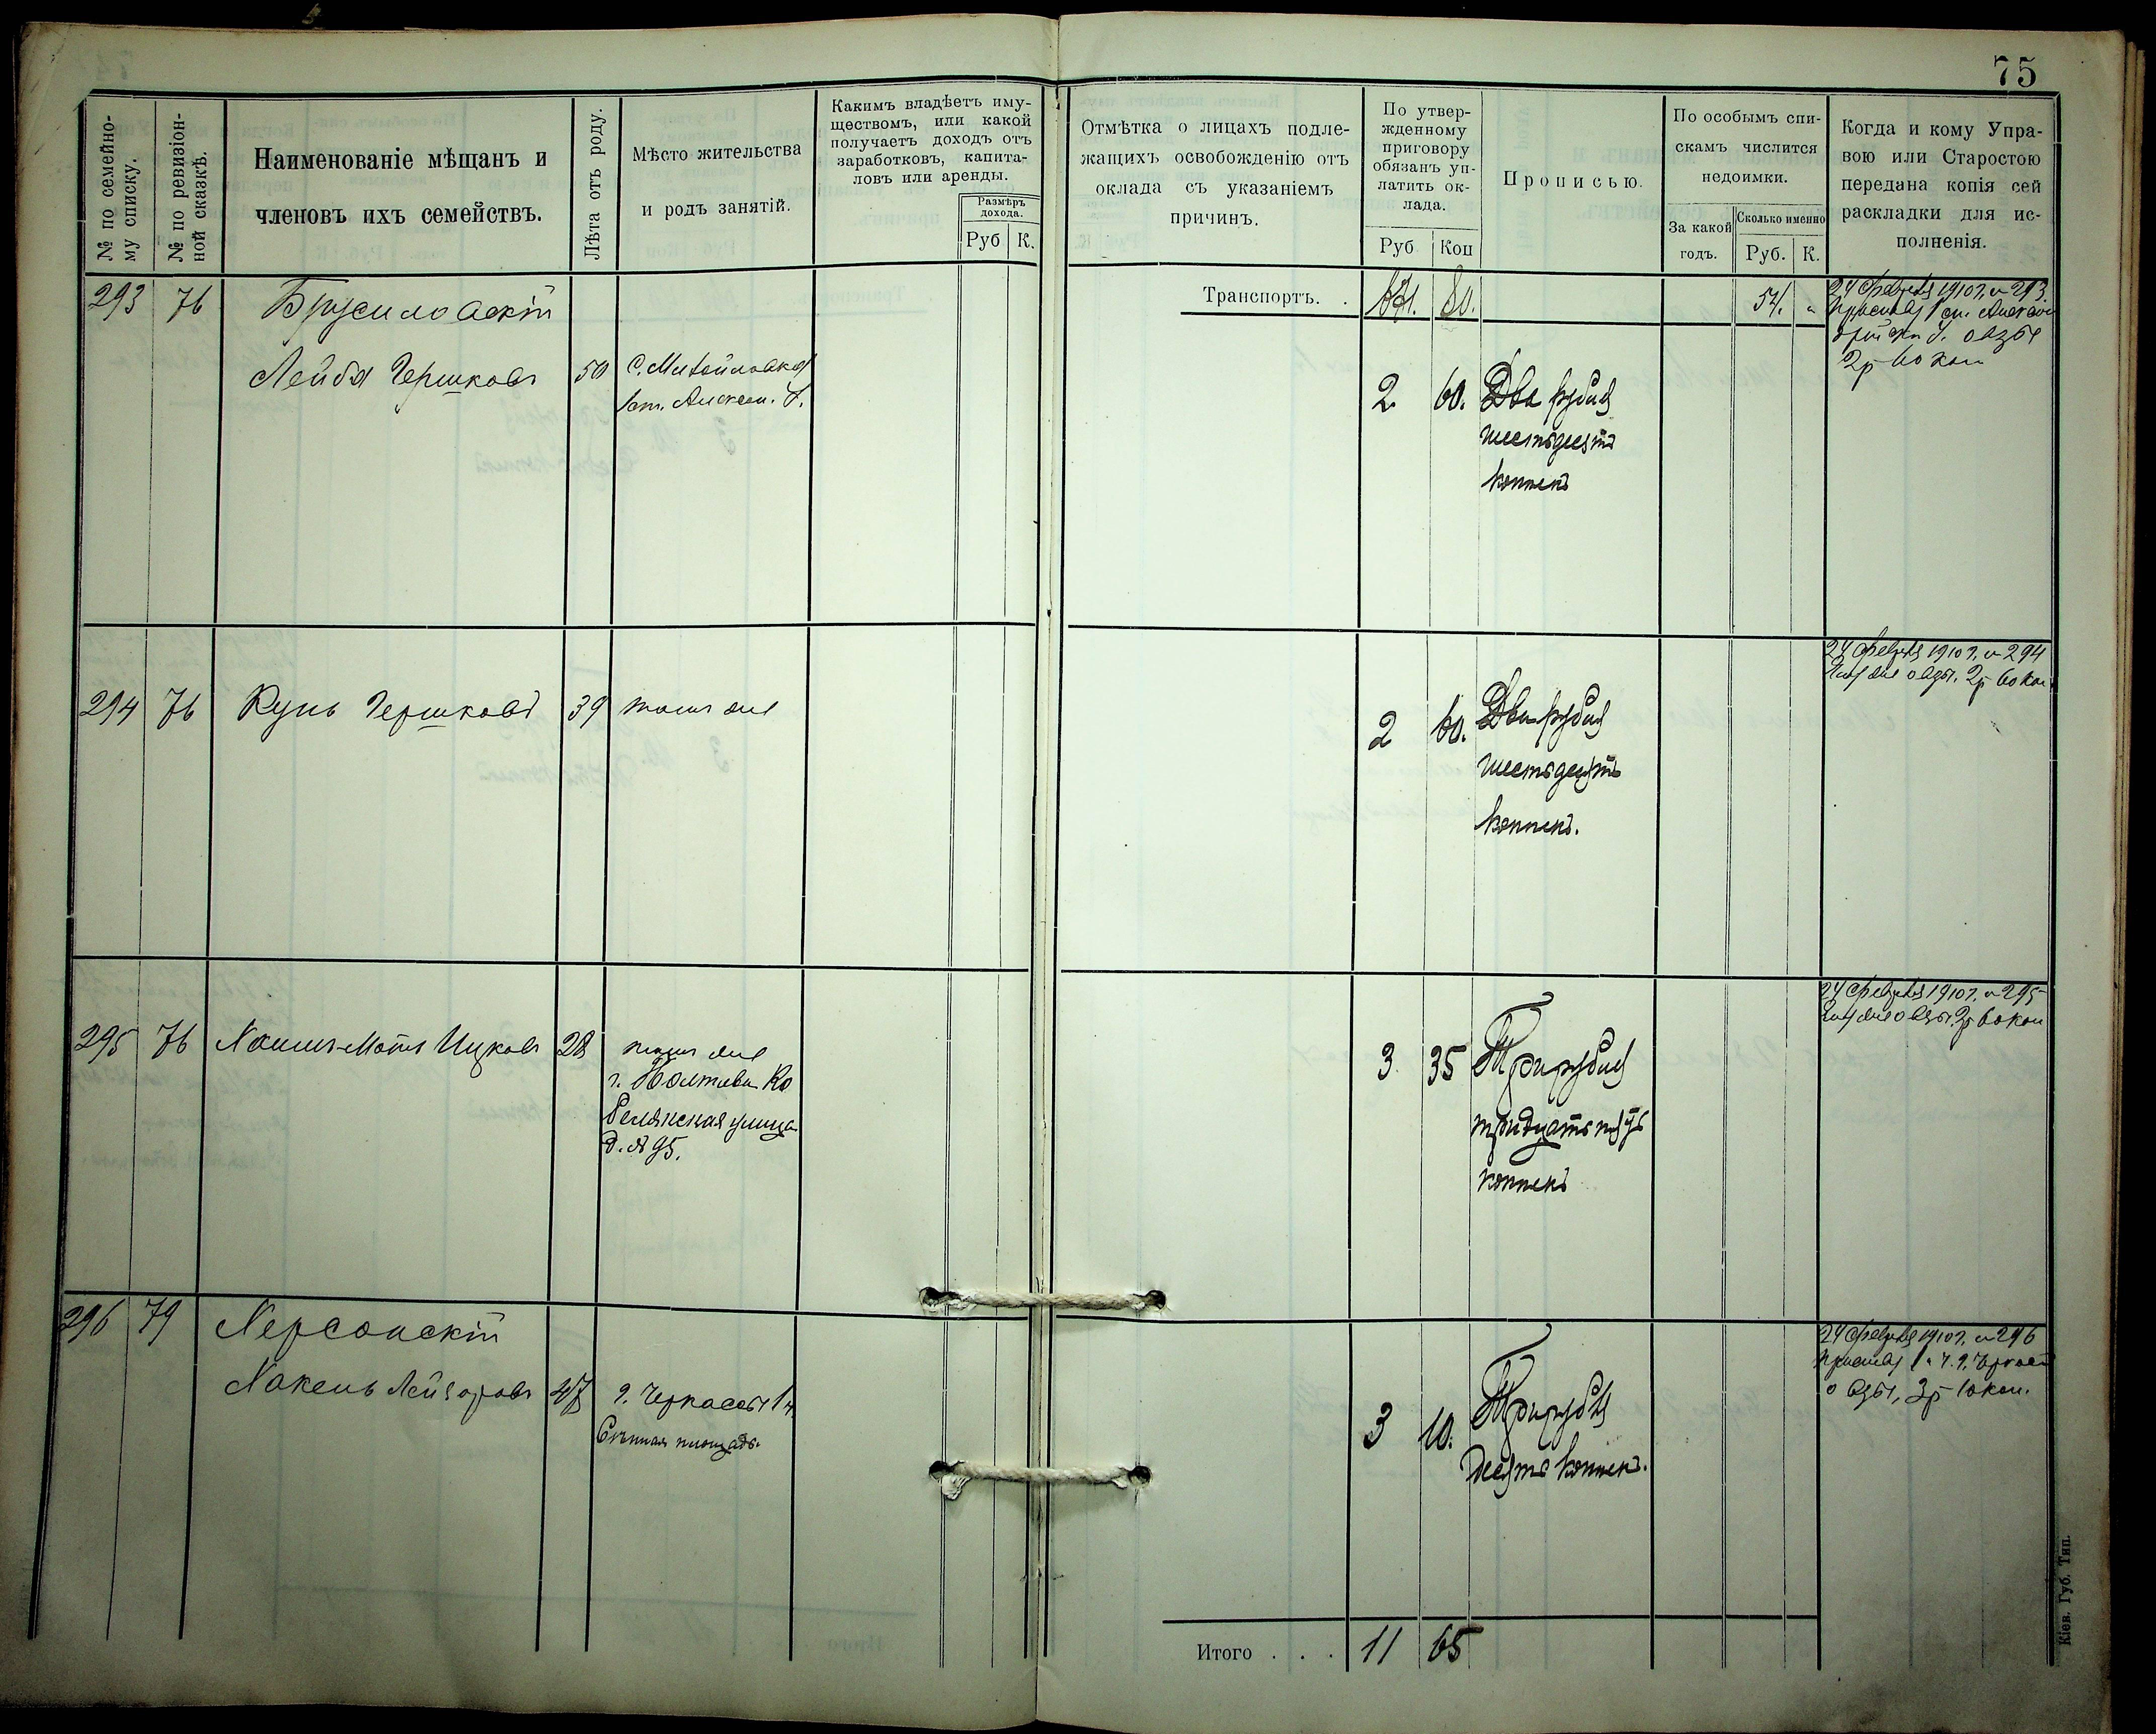 75
№ по семейно-
му списку.
№ по ревизіон-
ной сказкѣ.
Наименованіе мѣщанъ и
членовъ ихъ семействъ.
Лѣта отъ роду.
Мѣсто жительства
и родъ занятій.
Какимъ владѣетъ иму-
ществомъ, или какой
получаетъ доходъ отъ
заработковъ, капита-
ловъ или аренды.
Размѣръ
дохода.
Руб К.
Отмѣтка о лицахъ подле-
жащихъ освобожденію отъ
оклада съ указаніемъ
причинъ.
По утвер-
жденному
приговору
обязанъ уп-
латить ок-
лада.
Руб Коп
Прописью.
По особымъ спи-
скамъ числится
недоимки.
За какой
годъ.
Сколько именно
Руб. К.
Когда и кому Упра-
вою или Старостою
передана копія сей
раскладки для ис-
полненія.
Транспортъ. .
80.
293 76 Брусиловскій
Лейба Гершковъ 50 С. Михайловка
2 60. Два рубля
шестьдесятъ
копѣекъ
24 февраля 1910 г. № 293
2р 60 коп
294 76 Кунь Гершковъ 39 тамъ же
2 60. Два рубля
шестьдесятъ
копѣекъ.
24 февраля 1910 г. № 294
2р 60 коп
295 76 Хаимъ-Мотя Ицковъ 28 тамъ же
г. Полтава Ко
белякская улица
д. № 95.
3 35 Три рубля
тридцать пять
копѣекъ
24 февраля 1910 г. № 295
2р 60 коп
296 79 Херсонскій
Хакель Лейзоровъ 47 г. Черкассы 1 ч.
Сѣнная площадь.
3 10. Три рубля
десять копѣекъ.
24 февраля 1910 г. № 296
3р 10 коп.
Итого . . . 11 65
Кіев. Губ. Тип.